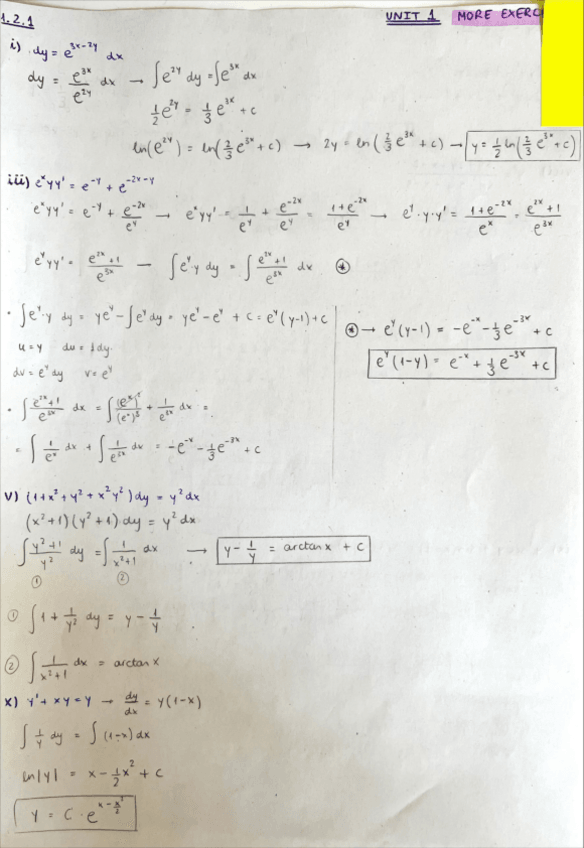 1.2.1 UNIT 1 MORE EXERC
i) dy = e^{3x-2y} dx
dy = e^{3x}/e^{2y} dx → ∫e^{2y} dy = ∫e^{3x} dx
1/2 e^{2y} = 1/3 e^{3x} + c
ln(e^{2y}) = ln(2/3 e^{3x} + c) → 2y = ln(2/3 e^{3x} + c) → y = 1/2 ln(2/3 e^{3x} + c)
iii) e^x yy' = e^{-y} + e^{-2x-y}
e^x yy' = e^{-y} + e^{-2x}/e^y → e^x yy' = 1/e^y + e^{-2x}/e^y = 1+e^{-2x}/e^y → e^y · y · y' = 1+e^{-2x}/e^x = e^{2x}+1/e^{3x}
e^y yy' = e^{2x}+1/e^{3x} — ∫e^y y dy = ∫ e^{2x}+1/e^{3x} dx ⊛
• ∫e^y · y dy = ye^y - ∫e^y dy = ye^y - e^y + c = e^y(y-1)+c
u = y du = 1 dy
dv = e^y dy v = e^y
• ∫ e^{2x}+1/e^{3x} dx = ∫ (e^x)^2/(e^x)^3 + 1/e^{3x} dx =
= ∫ 1/e^x dx + ∫ 1/e^{3x} dx = -e^{-x} - 1/3 e^{-3x} + c
⊛ → e^y(y-1) = -e^{-x} - 1/3 e^{-3x} + c
e^y(1-y) = e^{-x} + 1/3 e^{-3x} + c
v) (1+x² + y² + x²y²) dy = y² dx
(x²+1)(y²+1) dy = y² dx
∫ y²+1/y² dy = ∫ 1/x²+1 dx → y - 1/y = arctan x + c
① ②
① ∫ 1 + 1/y² dy = y - 1/y
② ∫ 1/x²+1 dx = arctan x
x) y' + xy = y → dy/dx = y(1-x)
∫ 1/y dy = ∫ (1-x) dx
ln|y| = x - 1/2 x² + c
y = C · e^{x - x²/2}